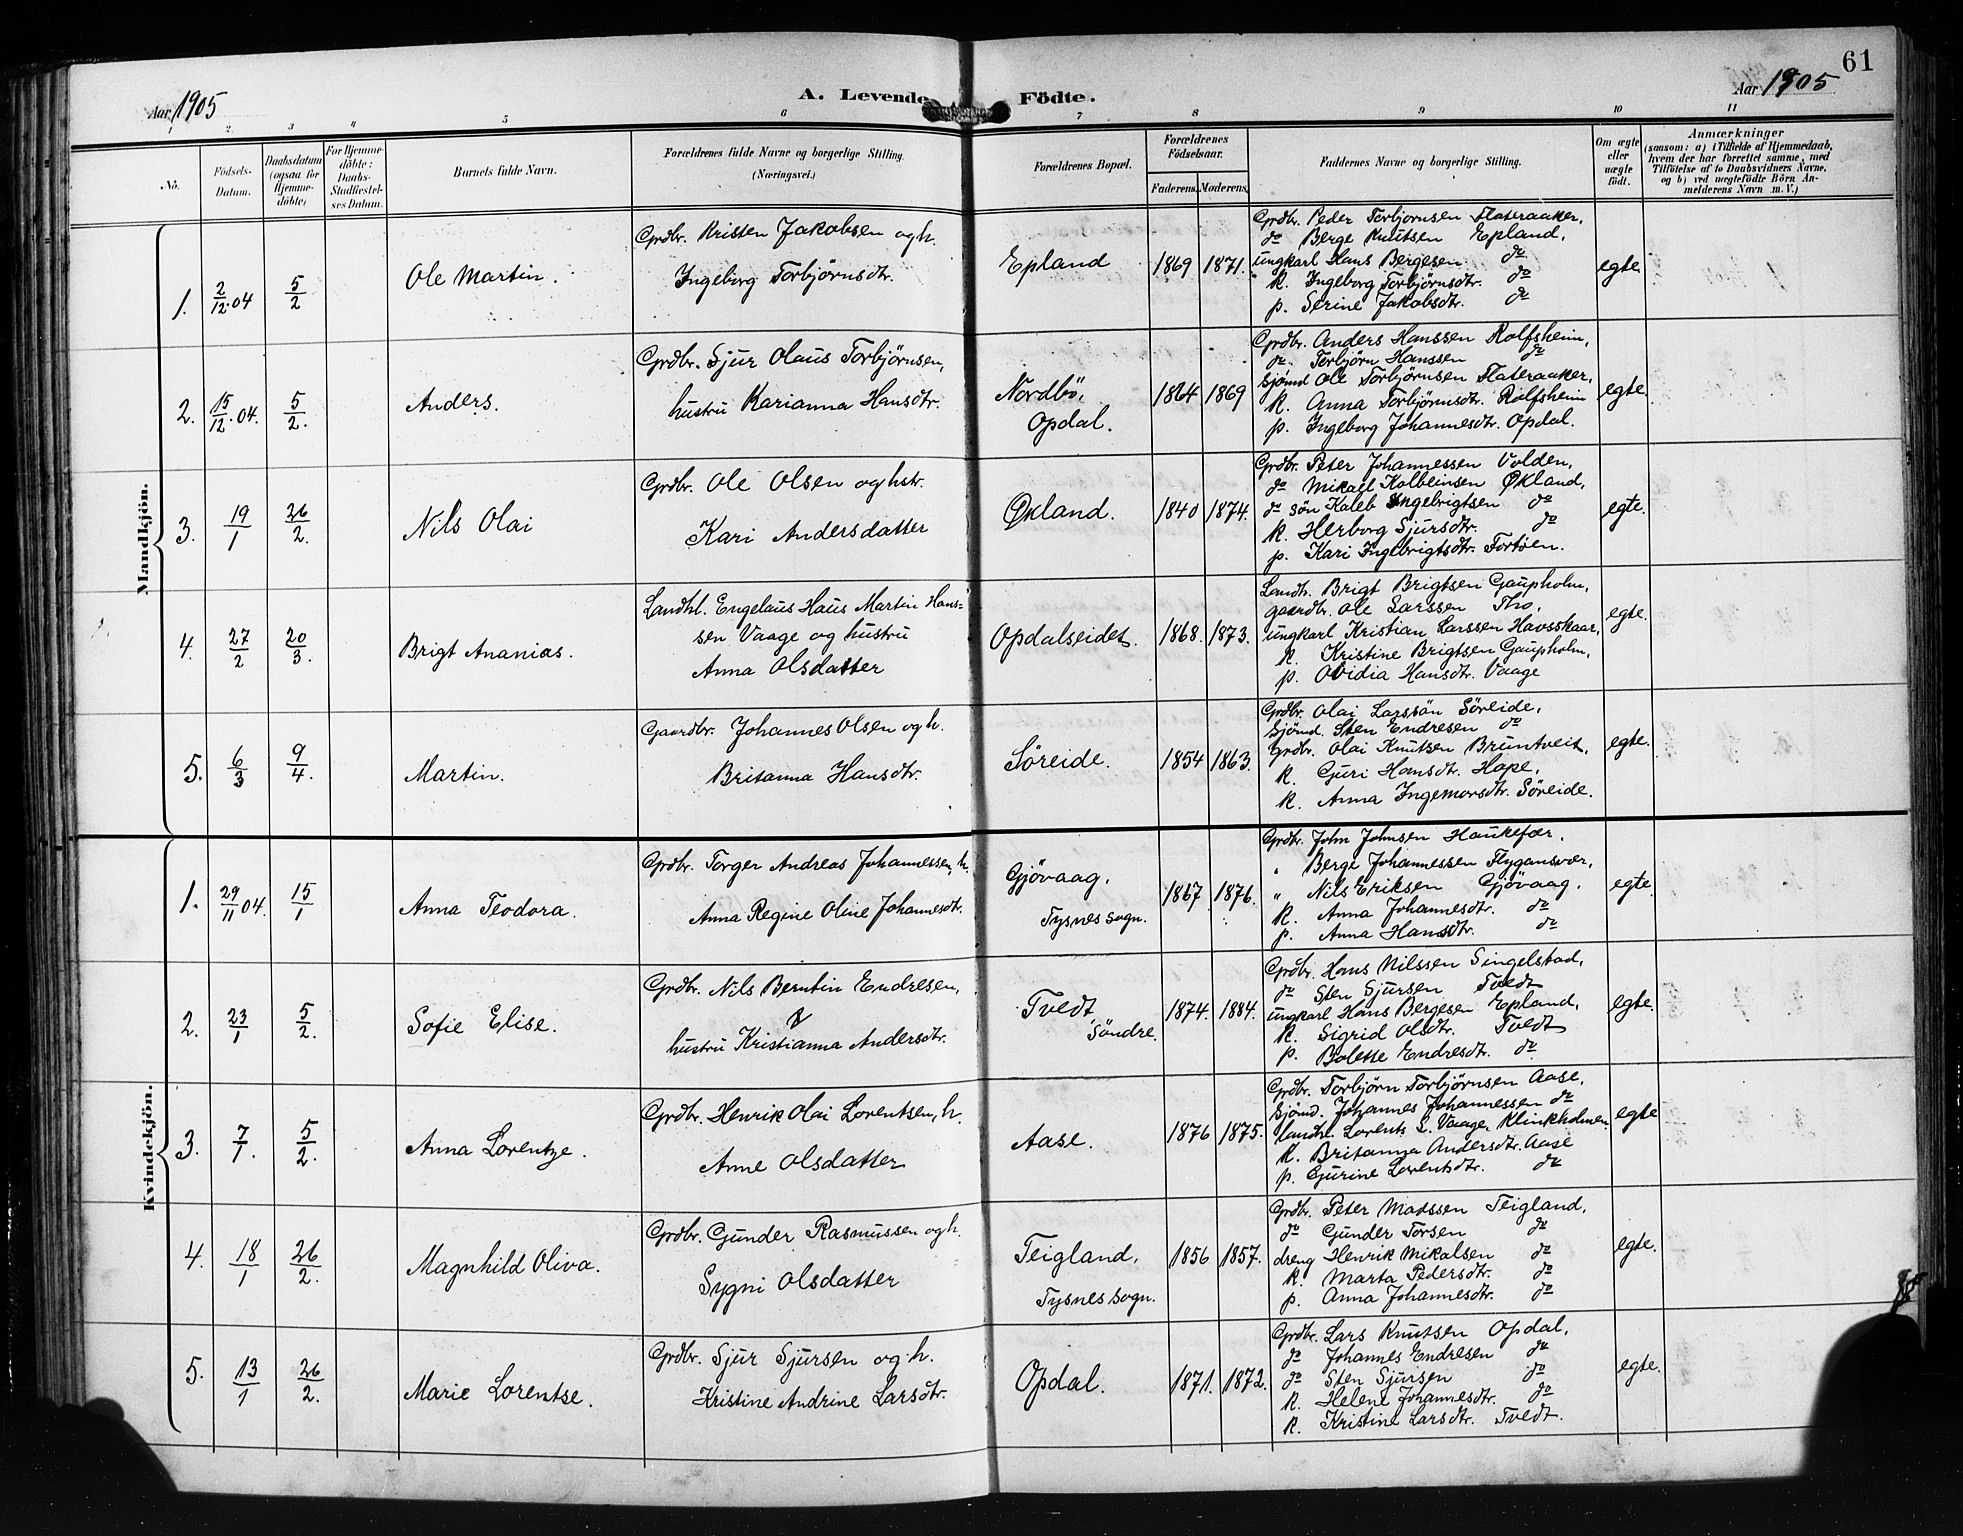 61
Aar 1905
A. Levende Födte.
Aar 1905
1 2 3 4 5 6 7 8 9 10 11
No.
Födsels-Datum.
Daabsdatum (ogsaa for Hjemme-döbte)
For Hjemme-döbte: Daabs-Stadfæstel-ses Datum.
Barnets fulde Navn.
Forældrenes fulde Navne og borgerlige Stilling.
(Næringsvei.)
Forældrenes Bopæl.
Forældrenes Födselsaar.
Faderens. Moderens.
Faddernes Navne og borgerlige Stilling.
Om ægte eller uægte födt.
Anmærkninger
(saasom: a) i Tilfælde af Hjemmedaab,
hvem der har forrettet samme, med
Tilföielse af to Daabsvidners Navne,
og b) ved uægtefödte Börn An-
melderens Navn m. V.)
Mandkjön.
1. 2/12.04 5/2 Ole Martin.
Grdbr. Kristen Jakobsen og h.
Ingeborg Torbjørnsdtr.
Epland 1869 1871.
Grdbr. Peder Torbjørnsen Flateraaker,
do Berge Knutsen Epland,
ungkarl Hans Bergesen do
K. Ingeborg Torbjørnsdtr. do
p. Serine Jakobsdtr. do
egte
2. 15/12.04. 5/2. Anders.
Grdbr. Sjur Olaus Torbjørnsen,
hustru Karianna Hansdtr.
Nordbö,
Opdal.
1864 1869
Grdbr. Anders Hanssen Rolfsheim,
do Torbjørn Hanssen do
Sjömd Ole Torbjørnsen Flateraaker,
K. Anna Torbjørnsdtr. Rolfsheim
p. Ingeborg Johannesdtr. Opdal.
egte
3. 19/1 26/2. Nils Olai
Grdbr. Ole Olsen og hstr.
Kari Andersdatter
Økland. 1840 1874.
Grdbr. Peter Johannessen Volden,
do Mikael Kolbeinsen Økland,
do søn Kaleb Ingebrigtsen do
K. Herborg Sjursdtr. do
p. Kari Ingebrigtsdtr. Tortöen.
egte.
4. 27/2 20/3. Brigt Ananias.
Landhl. Engelaus Haus Martin Hans=
sen Vaage og hustru
Anna Olsdatter
Opdalseidet. 1868. 1873.
Landh. Brigt Brigtsen Gaupholm,
gaardbr. Ole Larssen Tho,
ungkarl Kristian Larssen Havsskaar,
K. Kristine Brigtsen Gaupholm,
p. Ovidia Hansdtr. Vaage
egte.
5. 6/3 9/4. Martin.
Gaardbr. Johannes Olsen og h.
Britanna Hansdtr.
Söreide. 1854 1863.
Grdbr. Olai Larssön Söreide,
Sjömd. Sten Endresen do
Grdbr. Olai Knutsen Bruntveit,
K. Guri Hansdtr. Hope,
K. Anna Ingemorsdtr. Söreide.
egte.
Kvindekjön.
1. 29/11 04. 15/1 Anna Teodora.
Grdbr. Torger Andreas Johannessen, h.
Anna Regine Oline Johannesdtr.
Gjövaag,
Tysnes sogn.
1867. 1876.
Grdbr. John Johnsen Haukefær,
" Berge Johannessen Flygansvær,
" Nils Eriksen Gjövaag.
K. Anna Johannesdtr. do
p. Anna Hansdtr. do
egte.
2. 23/1 5/2. Sofie Elise.
Grdbr. Nils Berntin Endresen,
hustru Kristianna Andersdtr.
Tvedt
Söndre.
1874. 1884.
Grdbr. Hans Nilssen Singelstad,
do Sten Sjursen Tvedt
ungkarl Hans Bergesen Epland,
K. Sigrid Olsdtr. Tvedt
p. Bolette Endresdtr. do
egte.
3. 7/1. 5/2. Anna Lorentze.
Grdbr. Henrik Olai Lorentsen, h.
Anne Olsdatter
Aase. 1876 1875.
Grdbr. Torbjörn Torbjörnsen Aase,
Sjömd. Johannes Johannessen do
landhl. Lorents L. Vaage, Klinkholmen
K. Britanna Andersdtr. Aase
p. Gurine Lorentsdtr. do
egte
4. 18/1 26/2. Magnhild Oliva.
Grdbr. Gunder Rasmussen og h.
Sygni Olsdatter
Teigland,
Tysnes sogn.
1856 1857.
Grdbr. Peter Madssen Teigland,
do Gunder Torsen do
dreng Henrik Mikalsen do
K. Marta Pedersdtr. do
p. Anna Johannesdtr. do
egte.
5. 13/1 26/2. Marie Lorentse.
Grdbr. Sjur Sjursen og h.
Kristine Andrine Larsdtr.
Opdal. 1871. 1872.
Grdbr. Lars Knutsen Opdal,
do Johannes Endresen do
do Sten Sjursen do
K. Helene Johannesdtr. do
K. Kristine Larsdtr. Tvedt.
egte.